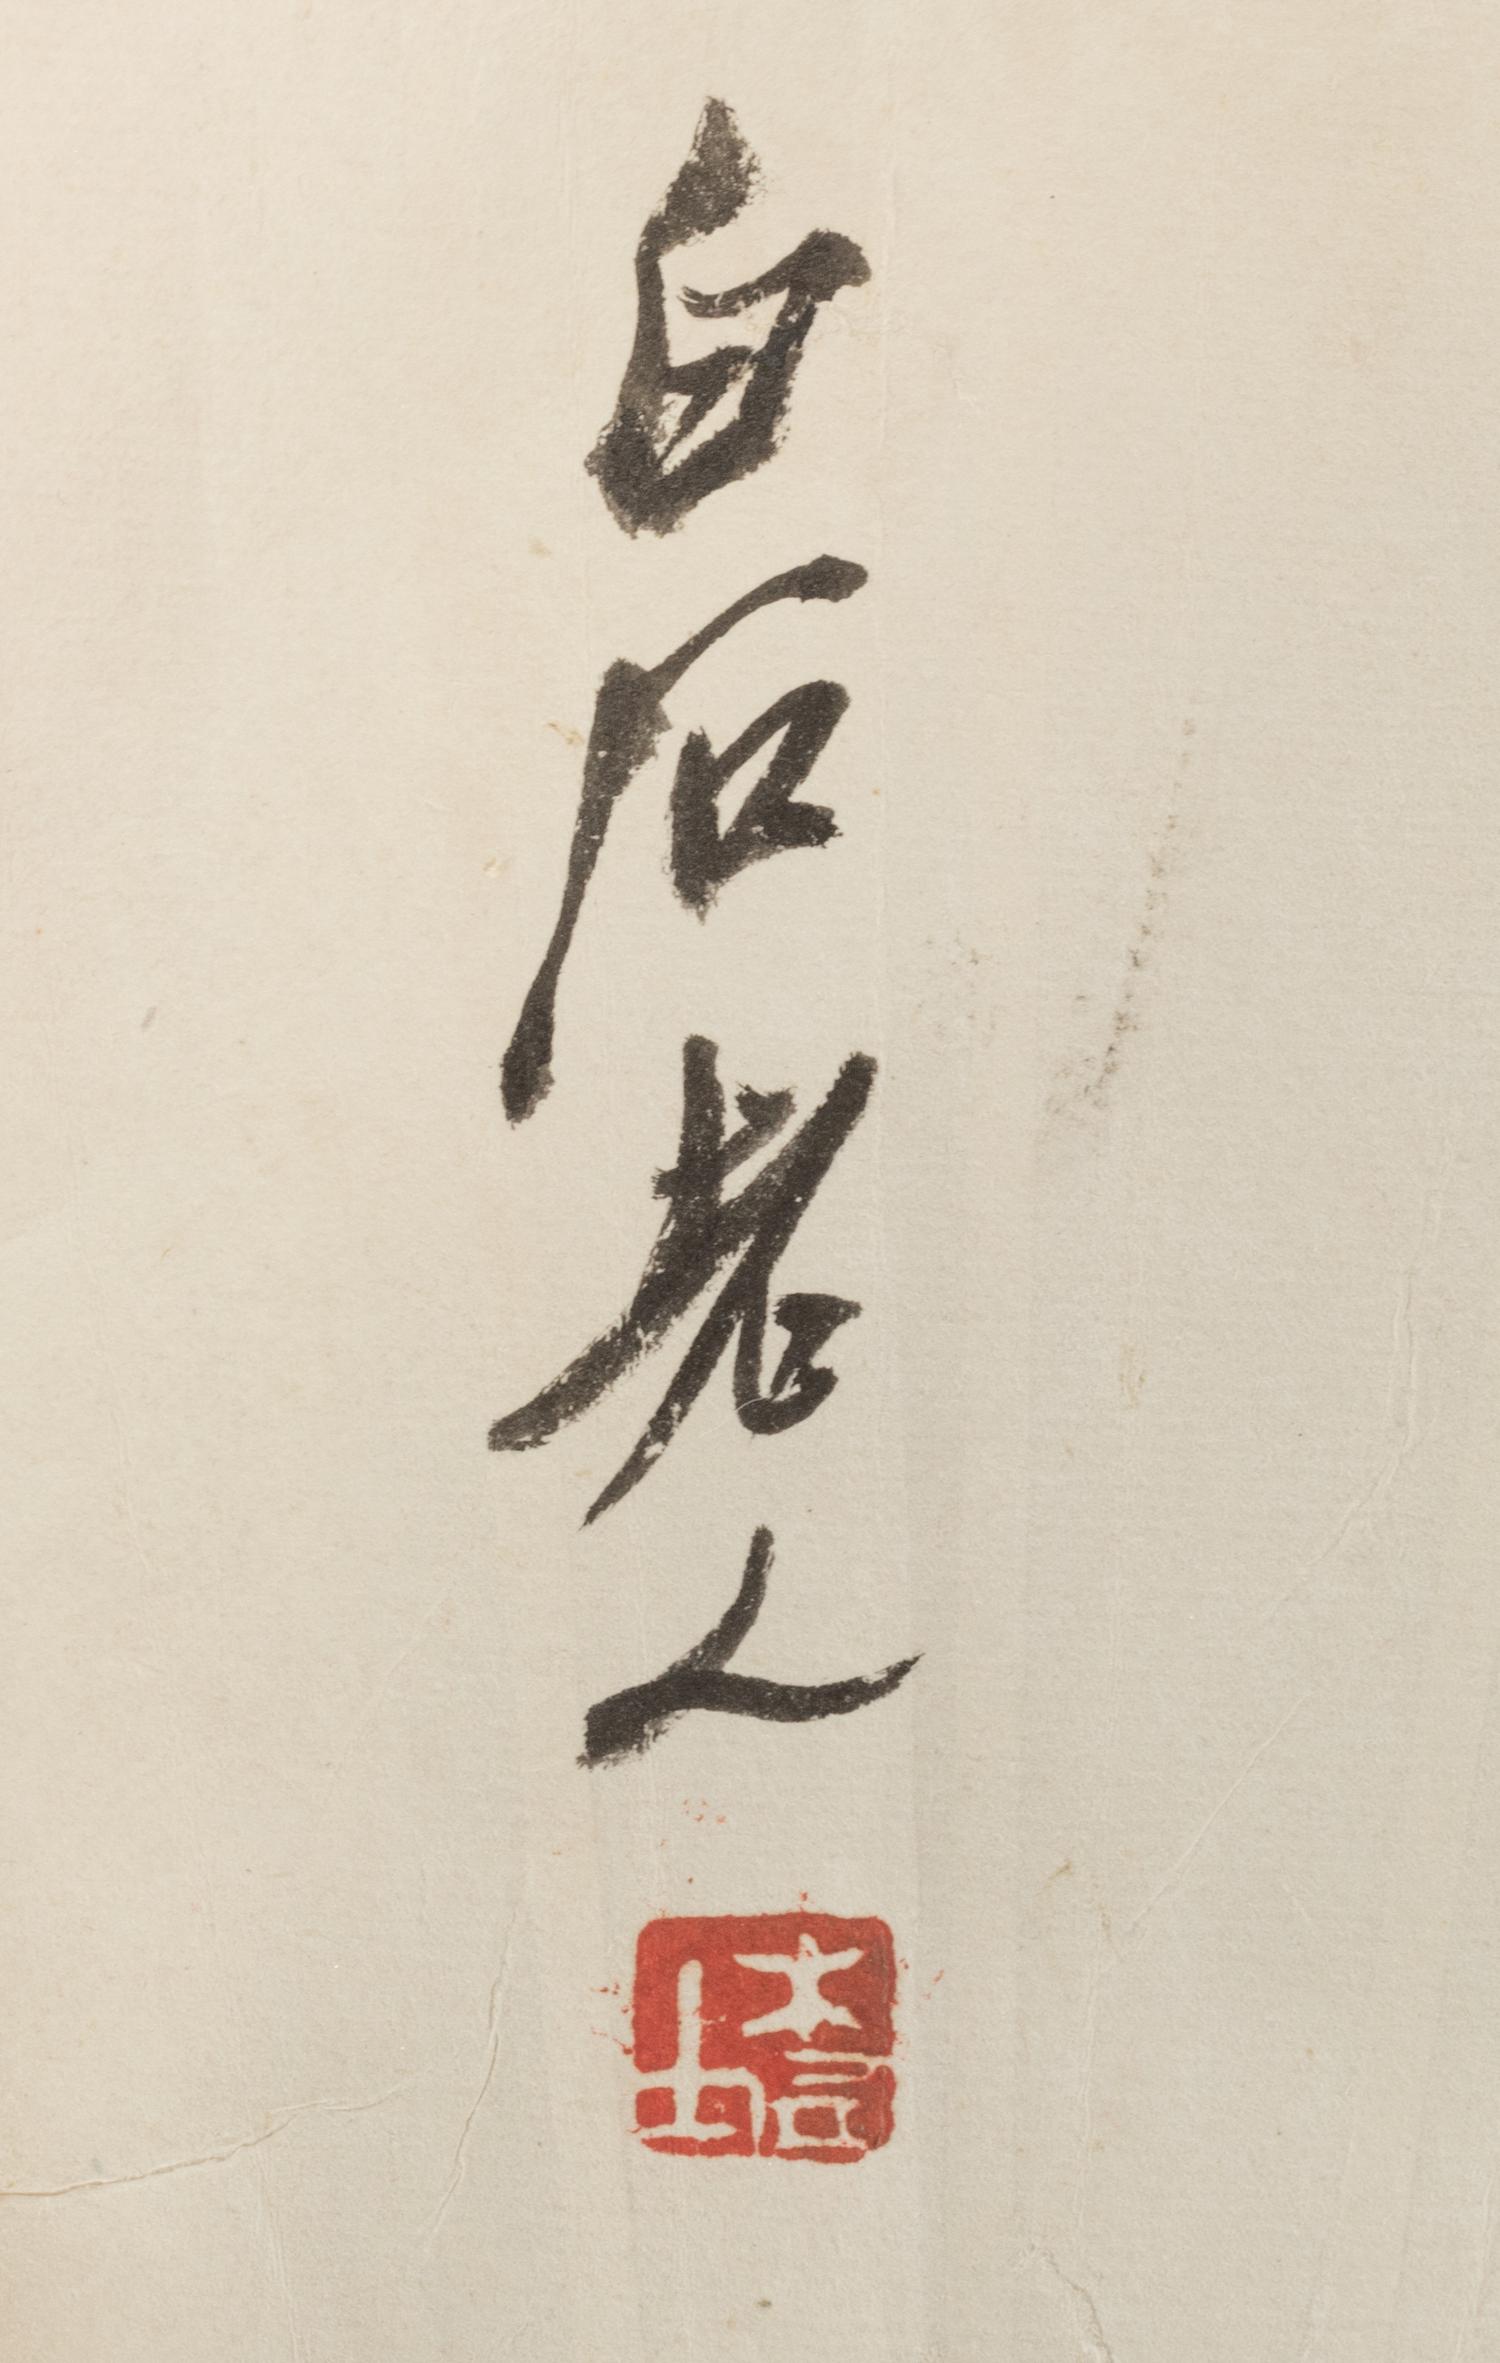 白石老人
木居士